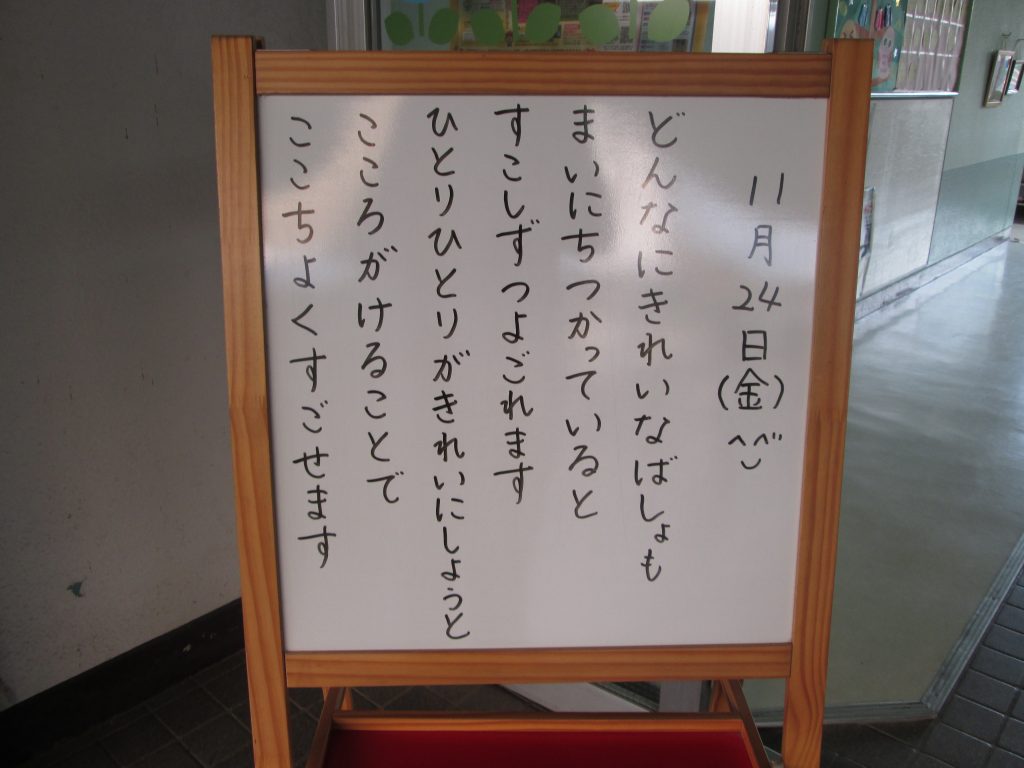 11月24日(金)^^
どんなにきれいなばしょも
まいにちつかっていると
すこしずつよごれます
ひとりひとりがきれいにしようと
こころがけることで
ここちよくすごせます